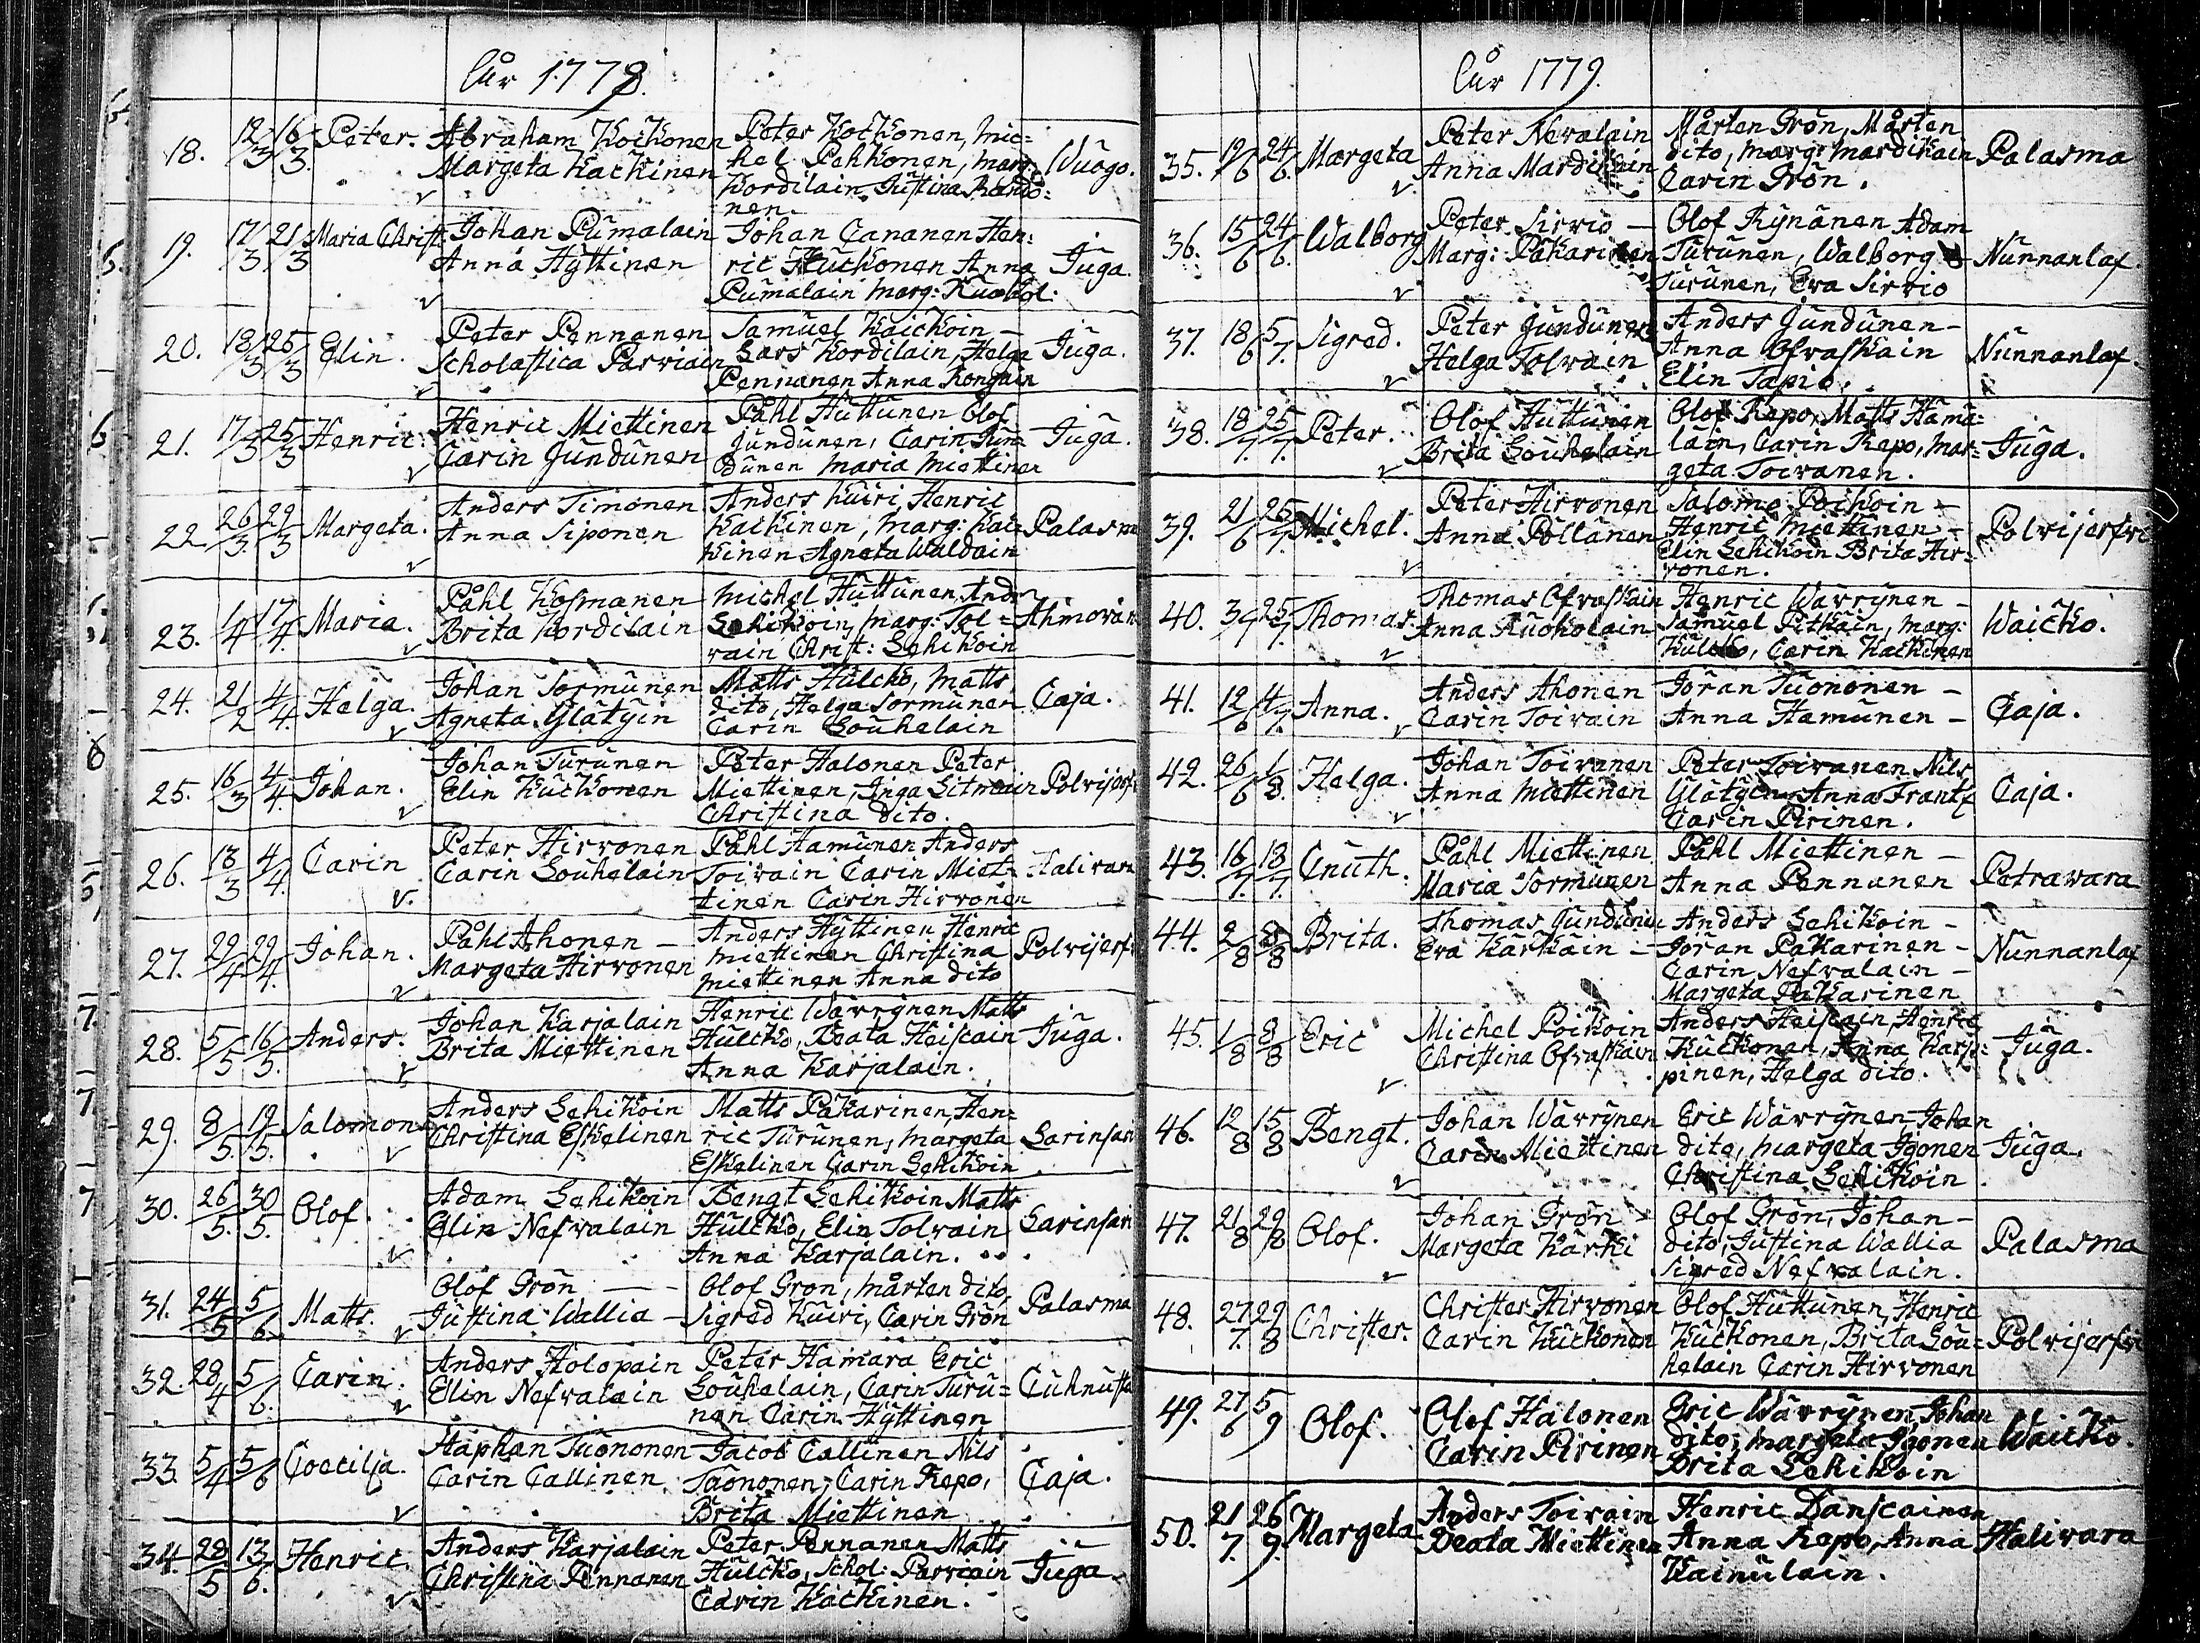 År 1779.
18. 12/3 16/3 Peter. Abraham Kockonen Peter Kockonen, Mic=
Margeta Kackinen hel Pehkonen, marg: Wuogo.
Kordilain Justina Rando=
nen
19. 17/3 21/3 Maria Christ: Johan Pumalain Johan Cananen Hen=
Anna Hyttinen ric Kuckonen Anna Juga.
Pumalain marg: Kuokol:
20. 18/3 25/3 Elin. Peter Pennanen Samuel Kaickoin –
Scholastica Parviain Lars Kordilain, Helga Juga.
Pennanen Anna Rongain
21. 17/3 25/3 Henric Henric Miettinen Påhl Huttunen Olof
Carin Jundunen Jundunen, Carin Jun= Juga.
dunen Maria Miettinen
22. 26/3 29/3 Margeta. Anders Timonen Anders Kuiri, Henric
Anna Siponen Kackinen, marg: Kac= Palasma
kinen Agneta Waldain
23. 1/4 17/4 Maria. Påhl Kosmanen Michel Huttunen Andr
Brita Kordilain Lehikoin, marg: Tol= Ahmovar
vain Christ: Lehikoin
24. 21/2 4/4 Helga. Johan Sormunen Matts Hulcko, Matts
Agneta Glatyin dito, Helga Sormunen Caja.
Carin Souhelain
25. 16/3 4/4 Johan. Johan Turunen Peter Halonen Peter
Elin Kuckonen Miettinen, Inga Litmain Polvijerf
Christina dito.
26. 18/3 4/4 Carin Peter Hirvonen Påhl Hamunen Anders
Carin Souhelain Toivain Carin Miet= Halivara
tinen Carin Hirvonen
27. 29/4 29/4 Johan. Påhl Ahonen – Anders Hyttinen Henric
Margeta Hirvonen Miettinen Christina Polvijerf
Miettinen Anna dito
28. 5/5 16/5 Anders. Johan Karjalain Henric Wärrynen Matts
Brita Miettinen Hulcko, Beata Heiscain Juga.
Anna Karjalain.
29. 8/5 19/5 Salomon Anders Lehikoin Matts Pakarinen, Hen=
Christina Eskelinen ric Turunen, Margeta Larinsari
Eskelinen Carin Lehikoin
30. 26/5 30/5 Olof. Adam Lehikoin Bengt Lehikoin Matts
Elin Nefvalain Hulcko, Elin Tolvain Larinsari
Anna Karjalain.
31. 24/5 5/6 Matts. Olof Grön – Olof Gron, Mårten dito,
Justina Wallia – Sigred Kuiri, Carin Grön Palasma
32. 28/4 5/6 Carin. Anders Holopain Peter Hamara Eric
Elin Nefvalain Souhelain, Carin Turu= Cuhnusta
nen Carin Hyttinen
33. 5/4 5/6 Coecilia. Staphan Tuononen Jacob Callinen Nils
Carin Callinen Tuononen, Carin Repo, Caja.
Brita Miettinen
34. 28/5 13/6 Henric Anders Karjalain Peter Pennanen Matts
Christina Pennanen Hulcko, Schol: Parviain Juga.
Carin Kackinen.
År 1779.
35. 19/6 24/6 Margeta Peter Nevalain Mårten Grön, Mårten
Anna Mardikain dito, marg: mardikain Palasma
Carin Grön.
36. 15/6 24/6 Walborg Peter Sirvio – Olof Rynänen Adam
Marg: Pakarinen Turunen, Walborg Nunnanlax.
Turunen, Eva Sirvio
37. 18/6 5/7 Sigred. Peter Jundunen Anders Jundunen –
Helga Tolvain Anna Ofvaskain Nunnanlax.
Elin Tapio.
38. 18/7 25/7 Peter. Olof Huttunen Olof Repo, Matts Hämä=
Brita Souhelain lain, Carin Repo, Mar= Juga.
geta Toivanen.
39. 21/6 25/7 Michel. Peter Hirvonen Salomo Poikoin –
Anna Pöllänen Henric Miettinen – Polvijerfvi
Elin Lehikoin Brita Hir=
vonen.
40. 3/7 25/7 Thomas Thomas Ofvaskain Henric Wärrynen –
Anna Ruokolain Samuel Pitkain, marg: Waicko.
Hulcko, Carin Kackinen
41. 12/6 4/7 Anna. Anders Ahonen Jöran Tuononen –
Carin Toivain Anna Hamunen – Caja.
42. 26/6 1/8 Helga. Johan Toivanen Peter Toivanen Nils
Anna Miettinen Glatyin Anna Frantz Caja.
Carin Pirinen.
43. 16/7 18/7 Cnuth. Påhl Miettinen Påhl Miettinen –
Maria Sormunen Anna Pennanen Petravara
44. 2/8 8/8 Brita. Thomas Jundunen Anders Lehikoin –
Eva Karkain – Jöran Pakarinen – Nunnanlax
Carin Nefvalain –
Margeta Pakarinen
45. 1/8 8/8 Eric Michel Poikoin Anders Heiscain, Henric
Christina Ofvaskain Kuckonen, Anna Karp= Juga.
pinen, Helga dito.
46. 12/8 15/8 Bengt. Johan Wärrynen Eric Wärrynen Johan
Carin Miettinen dito, Margeta Igonen Juga.
Christina Lehikoin
47. 21/8 29/8 Olof. Johan Grön Olof Grön, Johan –
Margeta Kärki dito, Justina Wallia Palasma
Sigred Nefvalain.
48. 27/7 29/8 Christer. Christer Hirvonen Olof Huttunen, Henric
Carin Kuckonen Kuckonen, Brita Sou= Polvijerfvi
helain Carin Hirvonen
49. 27/6 5/9 Olof. Olof Halonen Eric Wärrynen, Johan
Carin Pirinen dito, Margeta Igonen Waicko.
Brita Lehikoin
50. 21/7 26/9 Margeta Anders Toivain Henric Danscainen
Beata Miettinen Anna Repo, Anna Halivara
Kainulain.